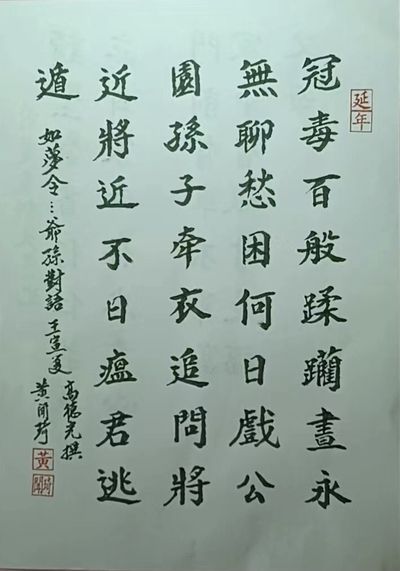 延年
冠毒百般蹂躪晝永
無聊愁困何日戲公
園孫子牽衣追問將
近將近不日瘟君逃
遁
如夢令…爺孫對話 壬寅夏
高德光撰
黃開
黃